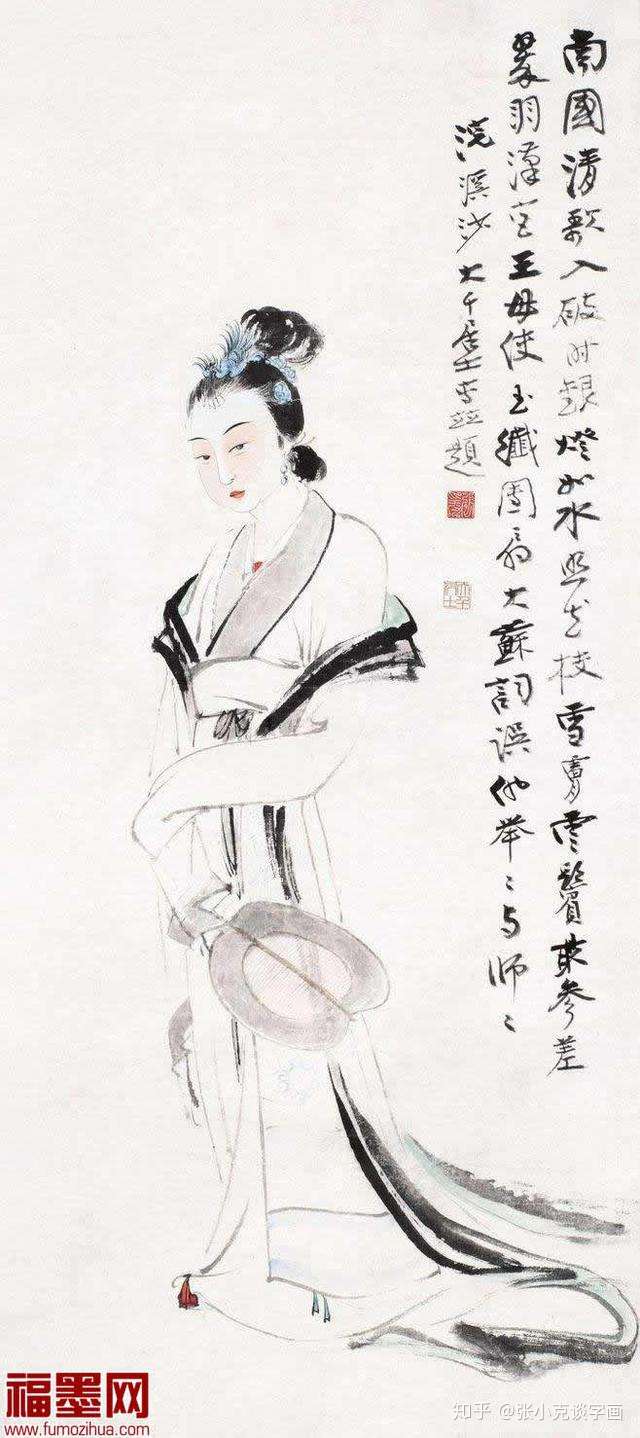 南國清歌入破时銀燈如水照花枝雪膚雲鬢最參差
翠羽漢宫王母使玉纖團扇大蘇詞誤他舉〻与師〻
浣溪沙 大千居士並題
福墨网
www.fumozihua.com
知乎 @张小克谈字画